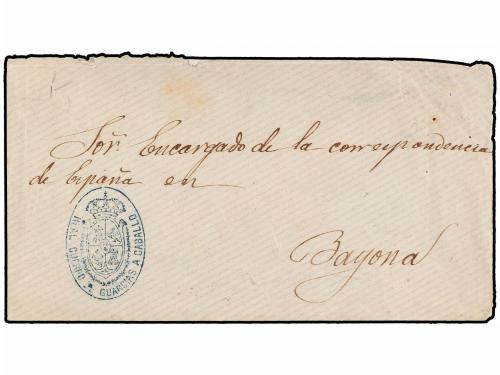 Sor. Encargado de la correspondencia
de España en
Bayona
REAL CUERPO
GUARDIAS A CABALLO